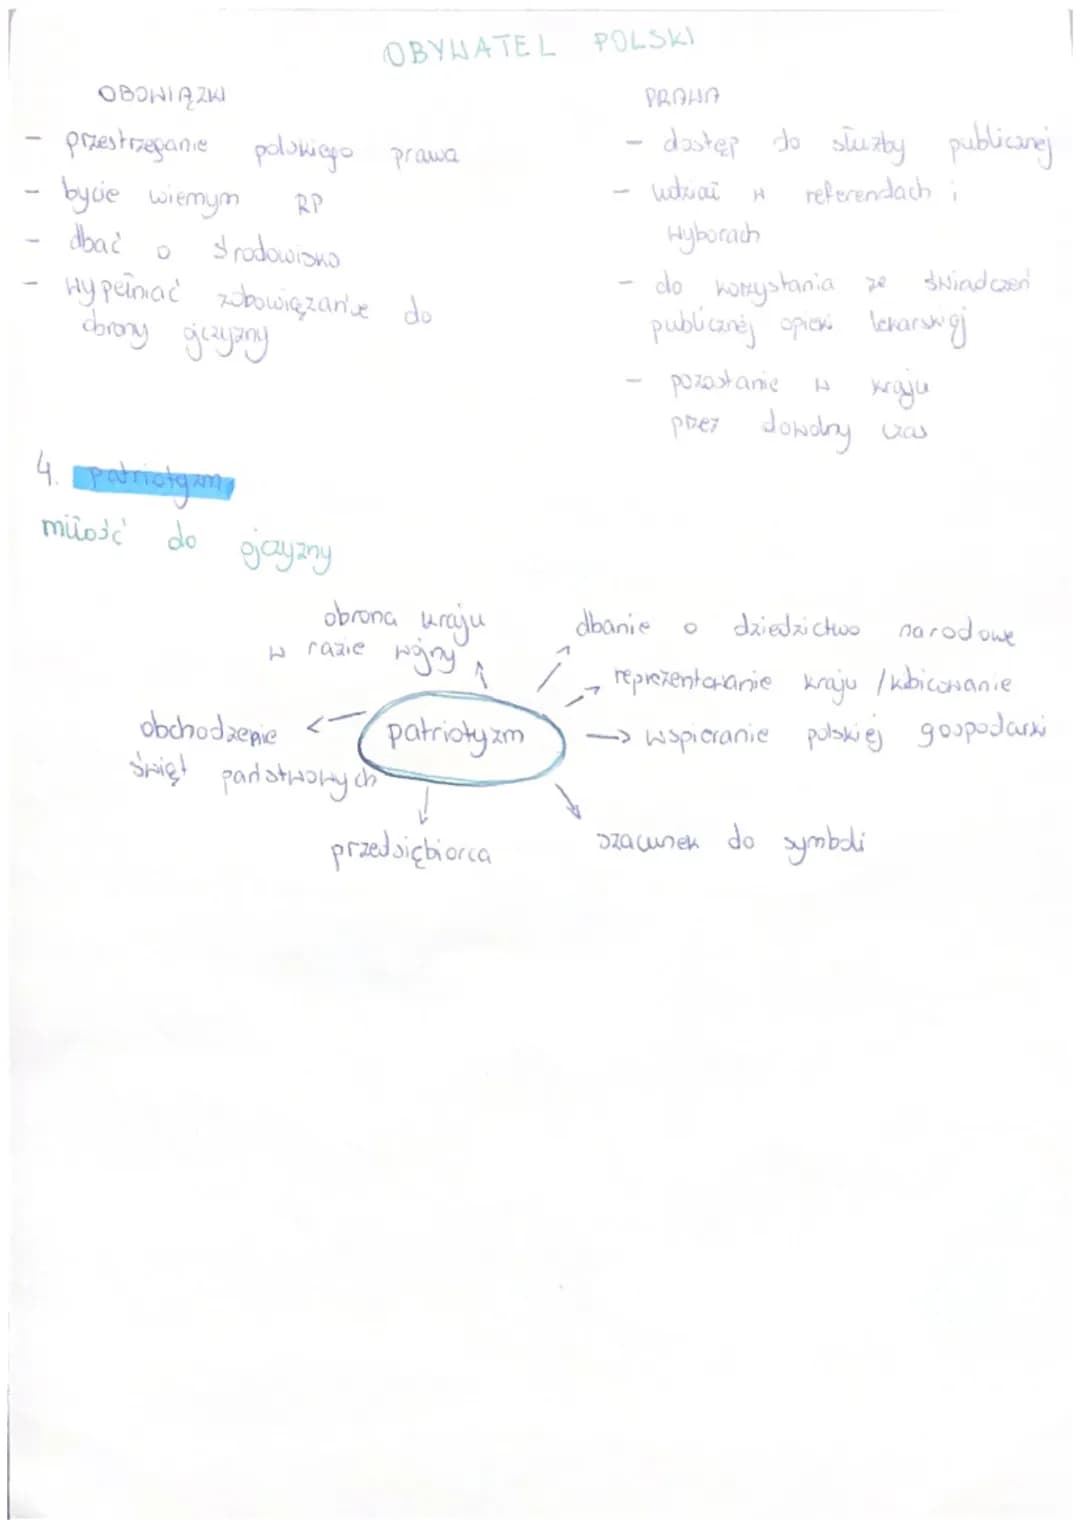 OBYWATEL POLSKI
OBOWIĄZKI
- przestrzeganie polskiego prawa
- bycie wiernym RP
- dbać o środowisko
- wypełniać zobowiązanie do
obrony ojczyzny
PRAWA
- dostęp do służby publicznej
- udział w referendach i
wyborach
- do korzystania ze świadczeń
publicznej opieki lekarskiej
- pozostanie w kraju
przez dowolny czas
4. patriotyzm
miłość do ojczyzny
obrona kraju
w razie wojny
dbanie o dziedzictwo narodowe
reprezentowanie kraju / kibicowanie
obchodzenie
świąt państwowych
patriotyzm
wspieranie polskiej gospodarki
przedsiębiorca
szacunek do symboli